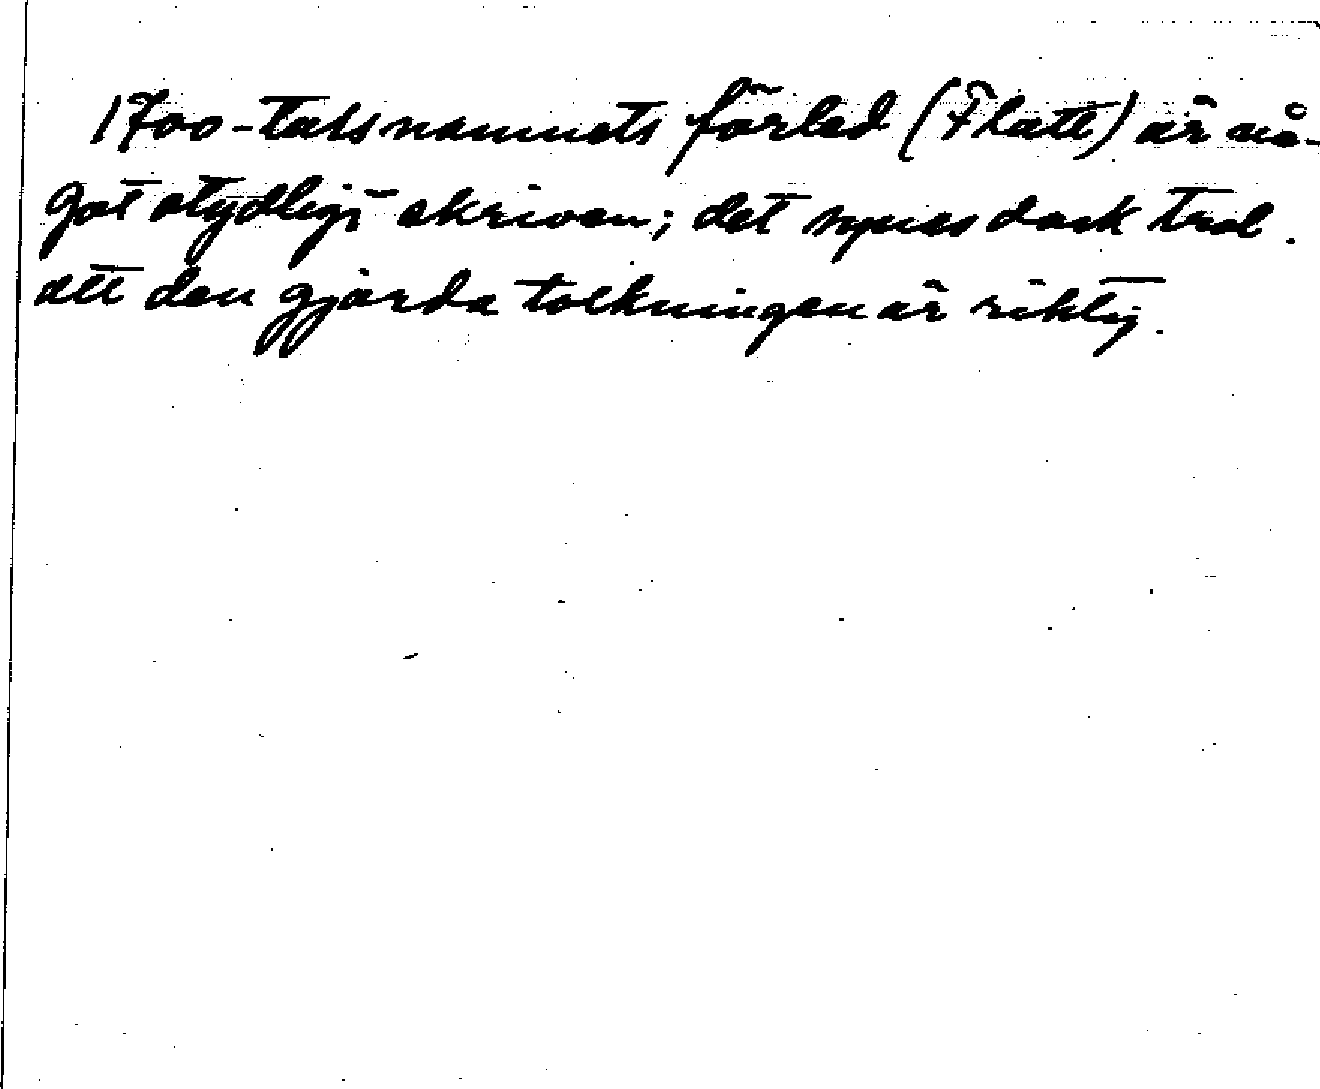 1700-talsnamnets förled (Flatt) är nå-
got otydligt skriven; det synes dock trol.
att den gjorda tolkningen är riktig.